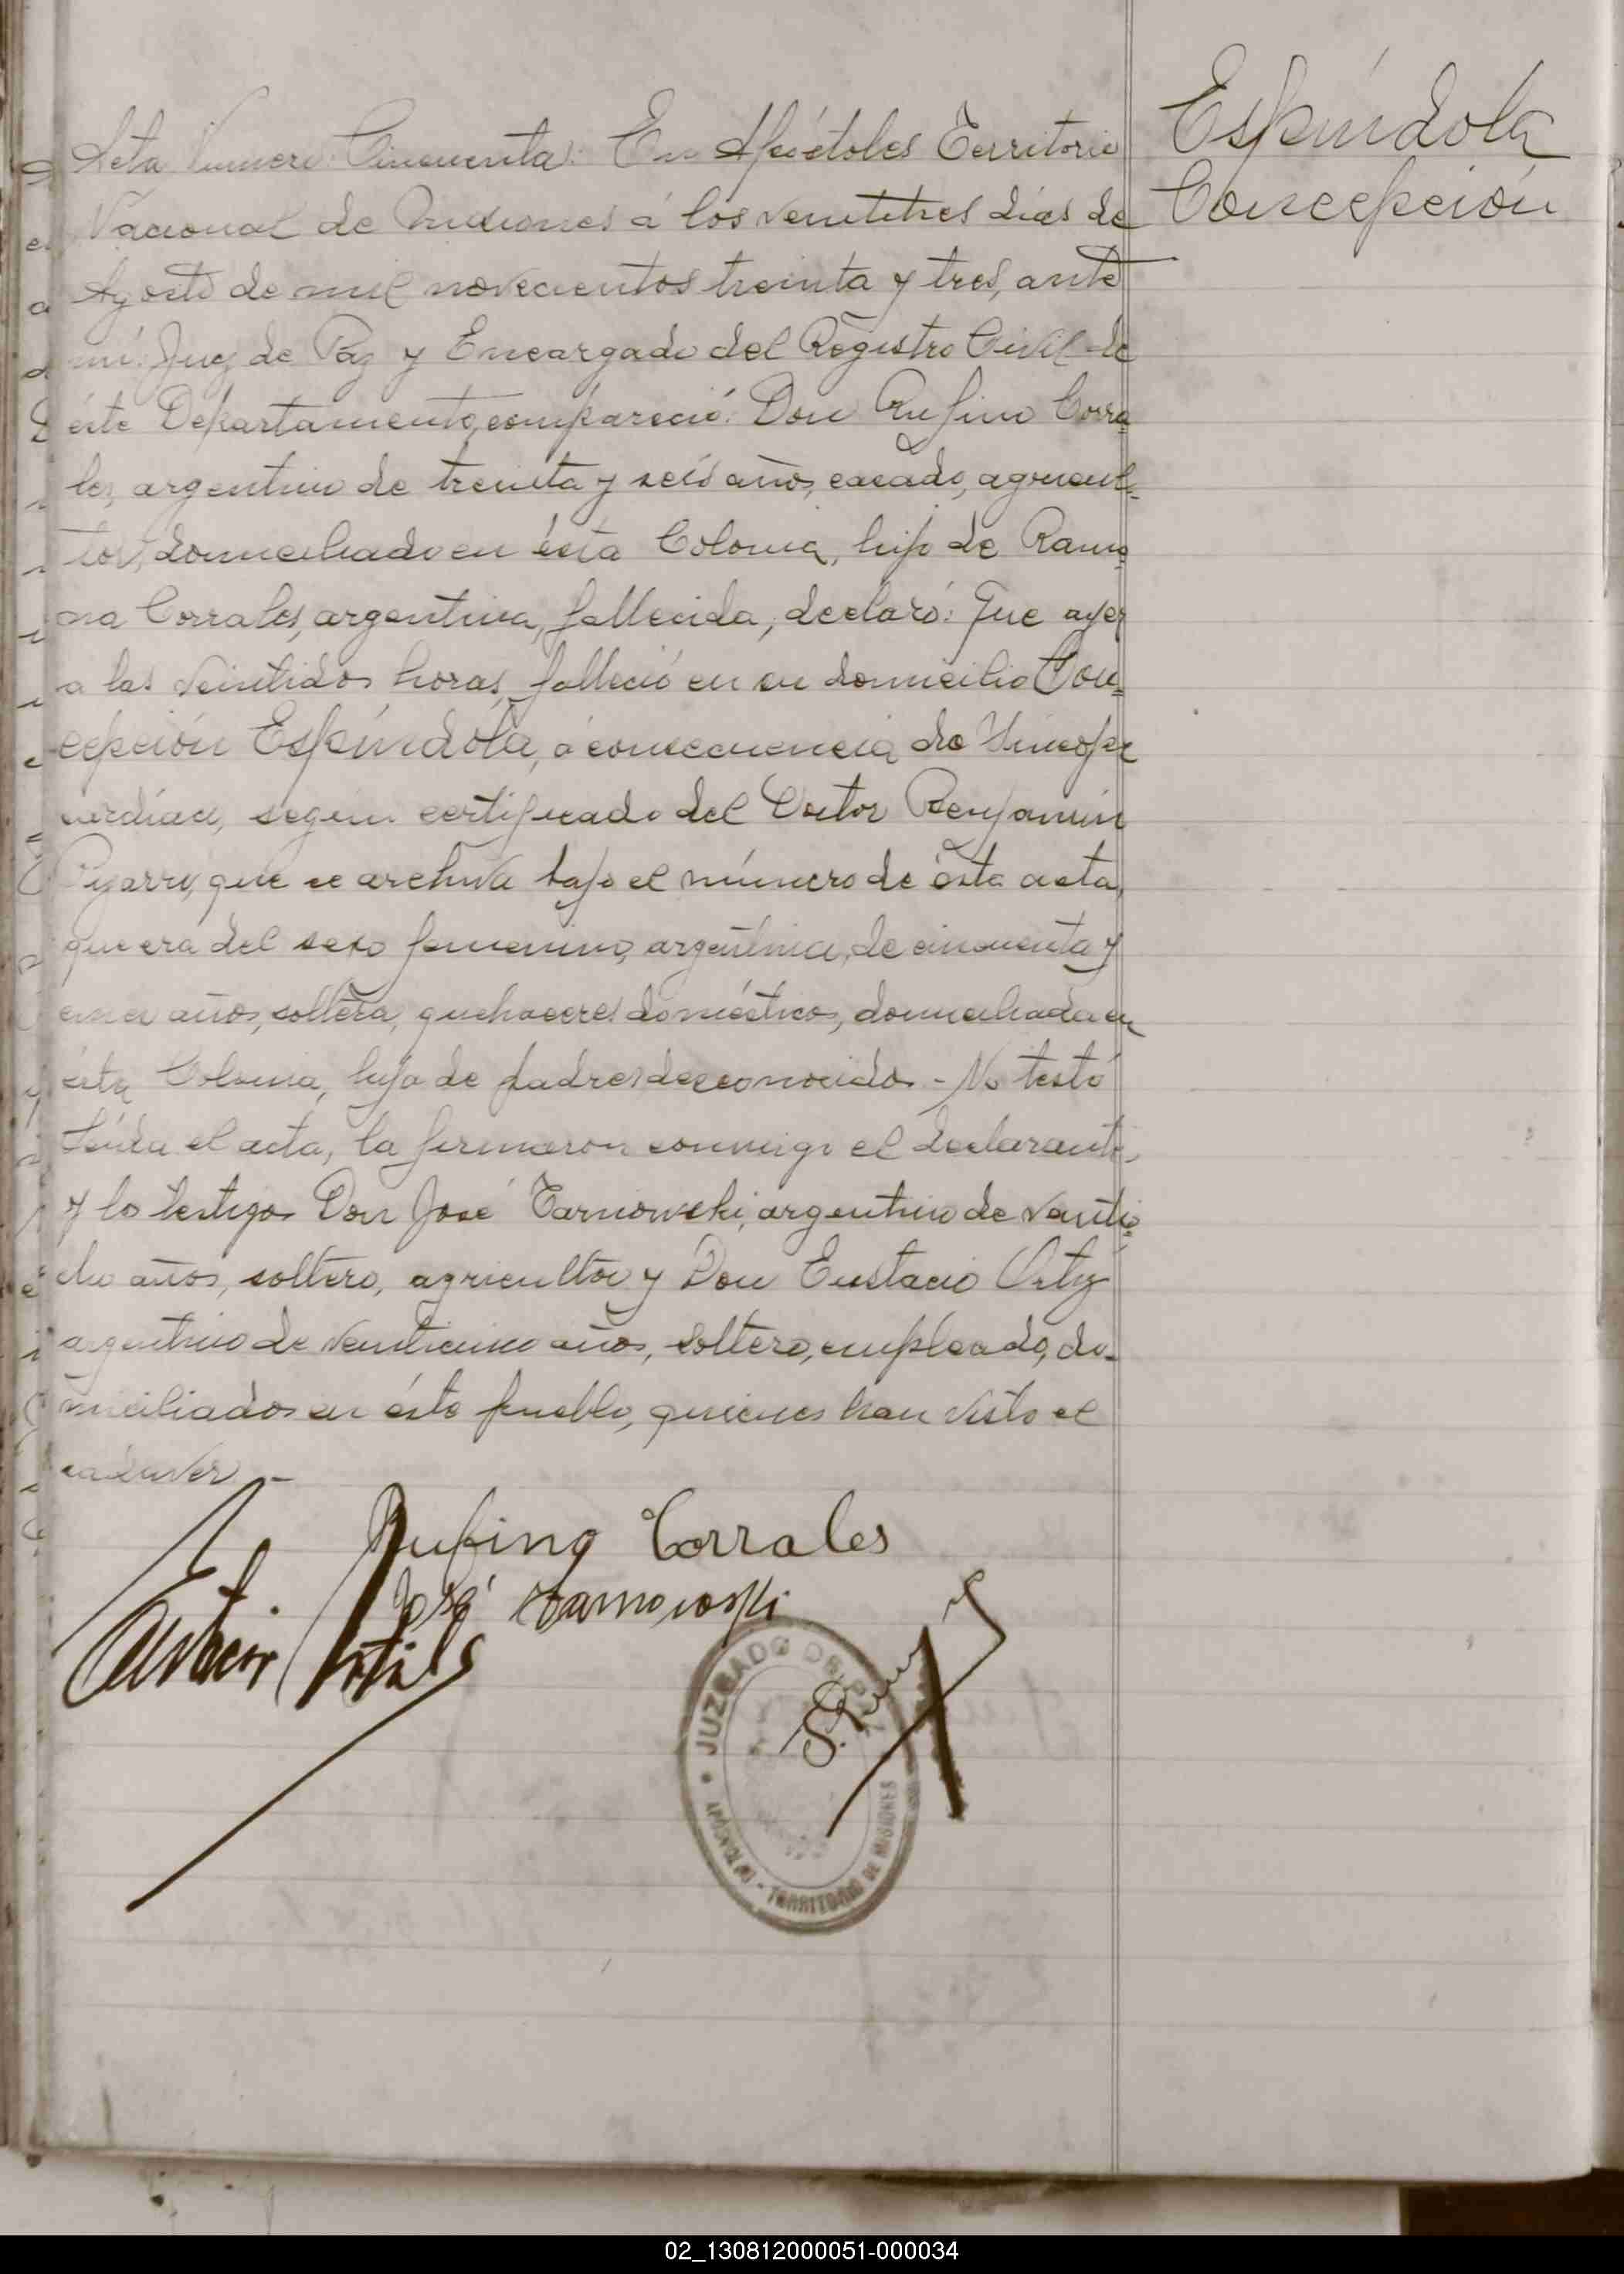 Espíndola
Concepción
Acta Número Cincuenta: En Apóstoles Territorio
Nacional de Misiones á los veintitres dias de
Agosto de mil novecientos treinta y tres, ante
mi: Juez de Paz y Encargado del Registro Civil de
éste Departamento, compareció: Don Rufino Corra-
les, argentino de treinta y seis años, casado, agricul-
tor, domiciliado en ésta Colonia, hijo de Ramo-
na Corrales, argentina, fallecida, declaró: Que ayer
a las veintidos horas, falleció en su domicilio Con-
cepción Espíndola, a consecuencia de Sincope
cardiaco, según certificado del Doctor Benjamín
que se archiva bajo el número de ésta acta,
que era del sexo femenino, argentina, de cincuenta y
años, soltera, quehaceres domésticos, domiciliada en
ésta Colonia, hija de padres desconocidos. - No testó
Leída el acta, la firmaron conmigo el declarante,
y los testigos Don José Tarnowski, argentino de veintio-
cho años, soltero, agricultor y Don Eustacio Ortiz
argentino de veinticinco años, soltero, empleado, do-
miciliados en éste pueblo, quienes han visto el
cadáver. -
Rufino Corrales
José Tarnowski
JUZGADO DE
APÓSTOLES - TERRITORIO DE MISIONES
02_130812000051-000034